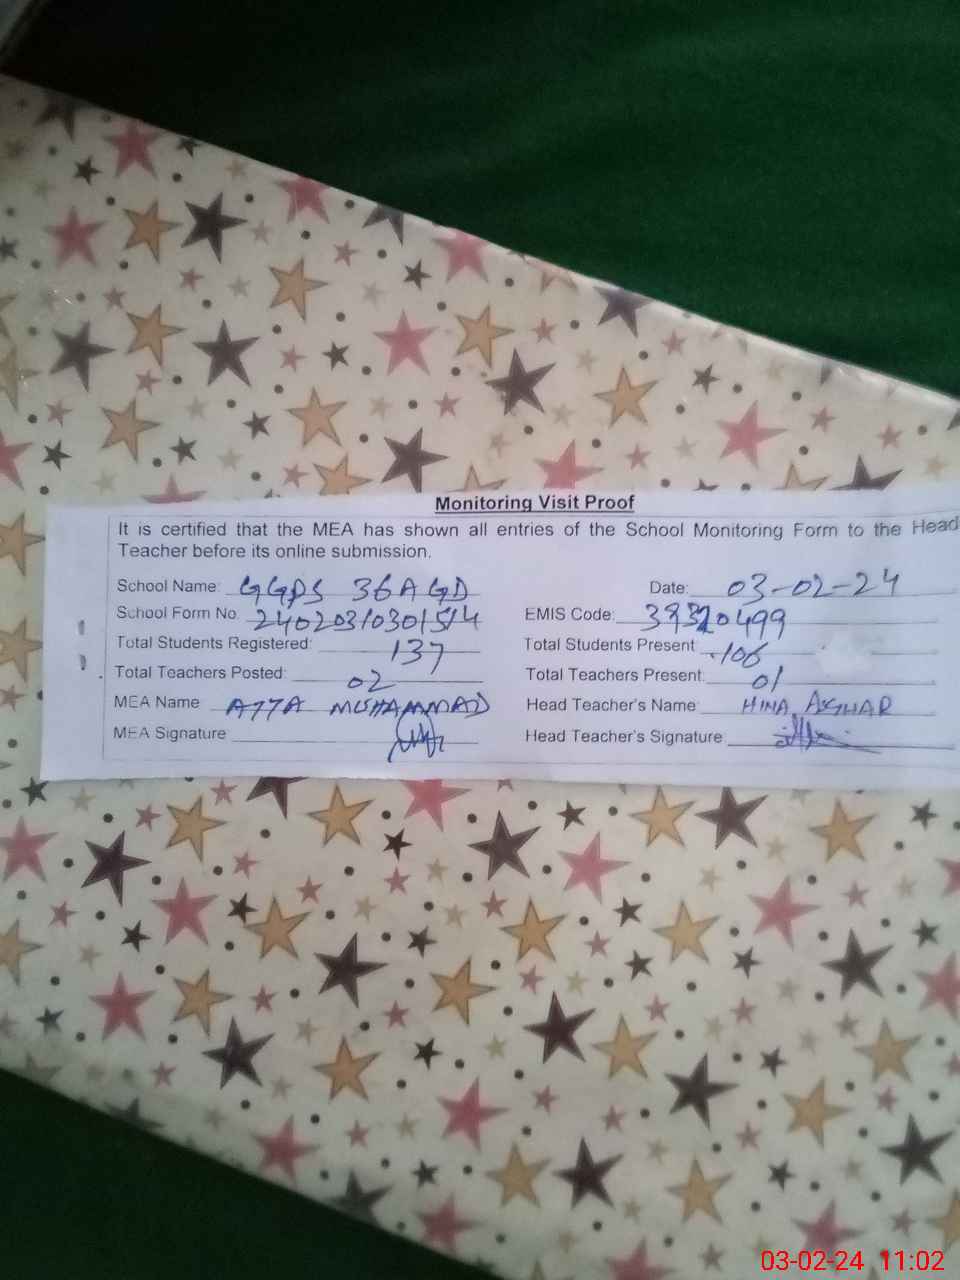 Monitoring Visit Proof
It is certified that the MEA has shown all entries of the School Monitoring Form to the Head
Teacher before its online submission.
School Name: GGPS 36A GD Date: 03-02-24
School Form No. 240203103015/4 EMIS Code: 39320499
Total Students Registered: 137 Total Students Present: 106
Total Teachers Posted: 02 Total Teachers Present: 01
MEA Name ATTA MUHAMMAD Head Teacher's Name HINA ASGHAR
MEA Signature Head Teacher's Signature
03-02-24 11:02